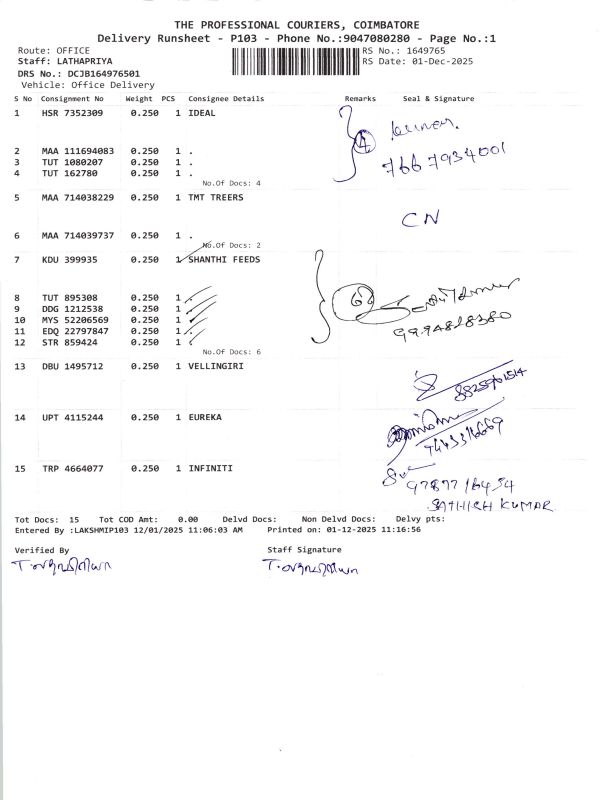 THE PROFESSIONAL COURIERS, COIMBATORE
Delivery Runsheet - P103 - Phone No.:9047080280 - Page No.:1
Route: OFFICE RS No.: 1649765
Staff: LATHAPRIYA RS Date: 01-Dec-2025
DRS No.: DCJB164976501
Vehicle: Office Delivery
S No Consignment No Weight PCS Consignee Details Remarks Seal & Signature
1 HSR 7352309 0.250 1 IDEAL
4
7667934001
2 MAA 111694083 0.250 1 .
3 TUT 1080207 0.250 1 .
4 TUT 162780 0.250 1 .
No.Of Docs: 4
5 MAA 714038229 0.250 1 TMT TREERS
CN
6 MAA 714039737 0.250 1 .
No.Of Docs: 2
7 KDU 399935 0.250 1 SHANTHI FEEDS
8 TUT 895308 0.250 1 .
9 DDG 1212538 0.250 1 .
10 MYS 52206569 0.250 1 .
11 EDQ 22797847 0.250 1 .
12 STR 859424 0.250 1 .
9994828380
No.Of Docs: 6
13 DBU 1495712 0.250 1 VELLINGIRI
14 UPT 4115244 0.250 1 EUREKA
15 TRP 4664077 0.250 1 INFINITI
SATHISH KUMAR
Tot Docs: 15 Tot COD Amt: 0.00 Delvd Docs: Non Delvd Docs: Delvy pts:
Entered By :LAKSHMIP103 12/01/2025 11:06:03 AM Printed on: 01-12-2025 11:16:56
Verified By Staff Signature